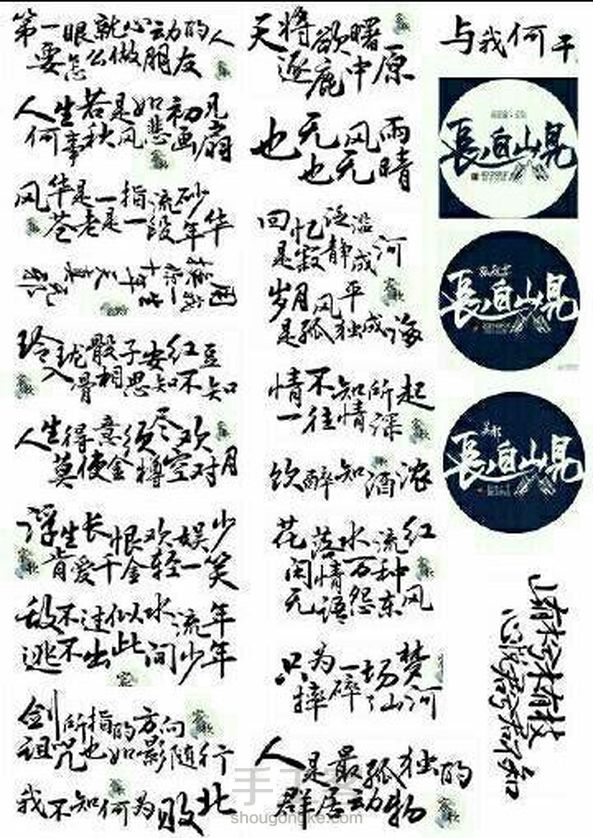 第一眼就心动的人
要怎么做朋友
人生若是如初见
何事秋风悲画扇
风华是一指流砂
苍老是一段年华
玲珑骰子安红豆
入骨相思知不知
人生得意须尽欢
莫使金樽空对月
浮生长恨欢娱少
肯爱千金轻一笑
敌不过似水流年
逃不出此间少年
剑所指的方向
诅咒也如影随行
我不知何为败北
天将欲曙
逐鹿中原
也无风雨
也无晴
回忆泛滥
是寂静成河
岁月风平
是孤独成海
情不知所起
一往情深
饮醉知酒浓
花落水流红
闲情万种
无语怨东风
只为一场梦
摔碎了山河
人是最孤独的
群居动物
与我何干
長白山見
長白山見
長白山見
山有木兮木有枝
心悦君兮君不知
手工客
shougongke.com